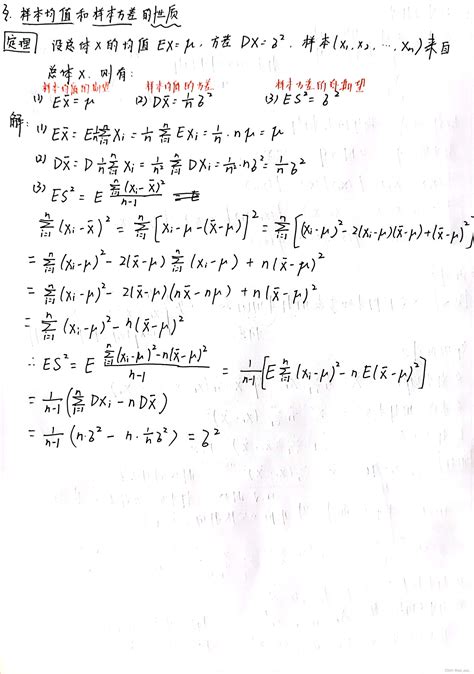 3. 样本均值和样本方差的性质
定理 设总体X的均值 EX=μ, 方差 DX=σ². 样本 (X₁, X₂, ..., Xₙ) 来自
总体X. 则有:
样本均值的期望 样本均值的方差 样本方差的期望
(1) EX̄=μ (2) DX̄=1/n σ² (3) ES²=σ²
解: (1) EX̄ = E 1/n ∑ᵢ₌₁ⁿ Xᵢ = 1/n ∑ᵢ₌₁ⁿ EXᵢ = 1/n · nμ = μ
(2) DX̄ = D 1/n ∑ᵢ₌₁ⁿ Xᵢ = 1/n² ∑ᵢ₌₁ⁿ DXᵢ = 1/n² · nσ² = 1/n σ²
(3) ES² = E ∑ᵢ₌₁ⁿ(Xᵢ-X̄)² / n-1
∑ᵢ₌₁ⁿ (Xᵢ-X̄)² = ∑ᵢ₌₁ⁿ [Xᵢ-μ-(X̄-μ)]² = ∑ᵢ₌₁ⁿ [(Xᵢ-μ)²-2(Xᵢ-μ)(X̄-μ)+(X̄-μ)²]
= ∑ᵢ₌₁ⁿ (Xᵢ-μ)² - 2(X̄-μ) ∑ᵢ₌₁ⁿ (Xᵢ-μ) + n(X̄-μ)²
= ∑ᵢ₌₁ⁿ (Xᵢ-μ)² - 2(X̄-μ)(nX̄-nμ) + n(X̄-μ)²
= ∑ᵢ₌₁ⁿ (Xᵢ-μ)² - n(X̄-μ)²
∴ ES² = E ∑ᵢ₌₁ⁿ(Xᵢ-μ)²-n(X̄-μ)² / n-1 = 1/n-1 [E ∑ᵢ₌₁ⁿ (Xᵢ-μ)² - n E(X̄-μ)²]
= 1/n-1 (∑ᵢ₌₁ⁿ DXᵢ - nDX̄)
= 1/n-1 (n·σ² - n· 1/n σ²) = σ²